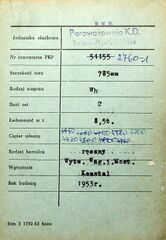 P.K.P.
Jednostka służbowa Parowozownia K.D.
Nr inwentarza PKP 51155 2760-1
Szerokość toru 785mm
Rodzaj wagonu Wh
Ilość osi 2
Ładowność w t. 8,5t.
Ciężar własny
Rodzaj hamulca ręczny
Wytwórnia Wytw. Wag. i Most.
Konstal
Rok budowy 1953r.